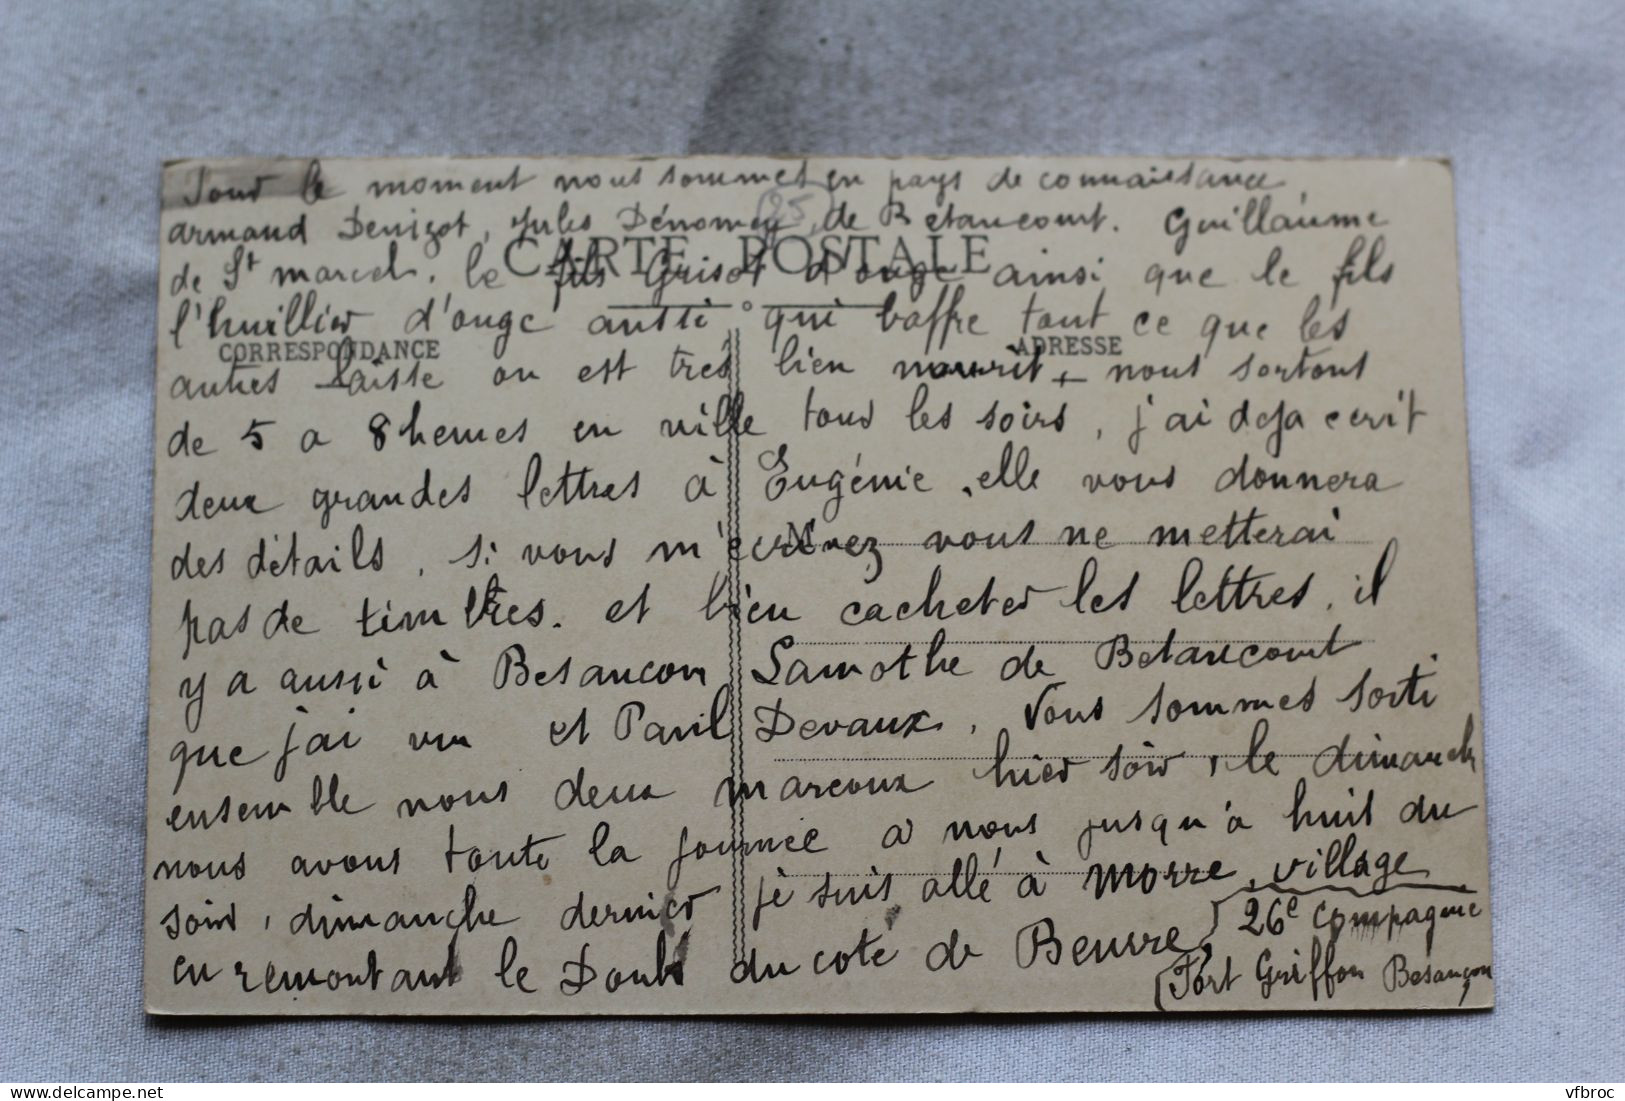 Tous le moment nous sommes en pays de connaissance,
armand Denizot, Jules Dénomey, de Betaucourt. Guillaume
25
CARTE POSTALE
de St marcel. le fils Grisot d'ouge ainsi que le fils
l'huillier d'ouge aussi, qui baffre tout ce que les
CORRESPONDANCE
ADRESSE
autres laisse on est très bien nourrit, nous sortons
de 5 a 8 heures en ville tous les soirs, j'ai deja ecrit
deux grandes lettres à Eugénie, elle vous donnera
des détails, si vous m'ecrivez vous ne metterai
M
pas de timbres. et bien cacheter les lettres, il
y a aussi à Besancon Lamothe de Betaucourt
que j'ai vu et Paul Devaux. Nous sommes sorti
ensemble nous deux marcoux hier soir, le dimanch
nous avons toute la journée a nous jusqu'à huit du
soir, dimanche dernier je suis allé à Morre, village
en remontant le Doubs du coté de Beurre,
26e Compagnie
Fort Griffon Besançon
delcampe.net
vfbroc